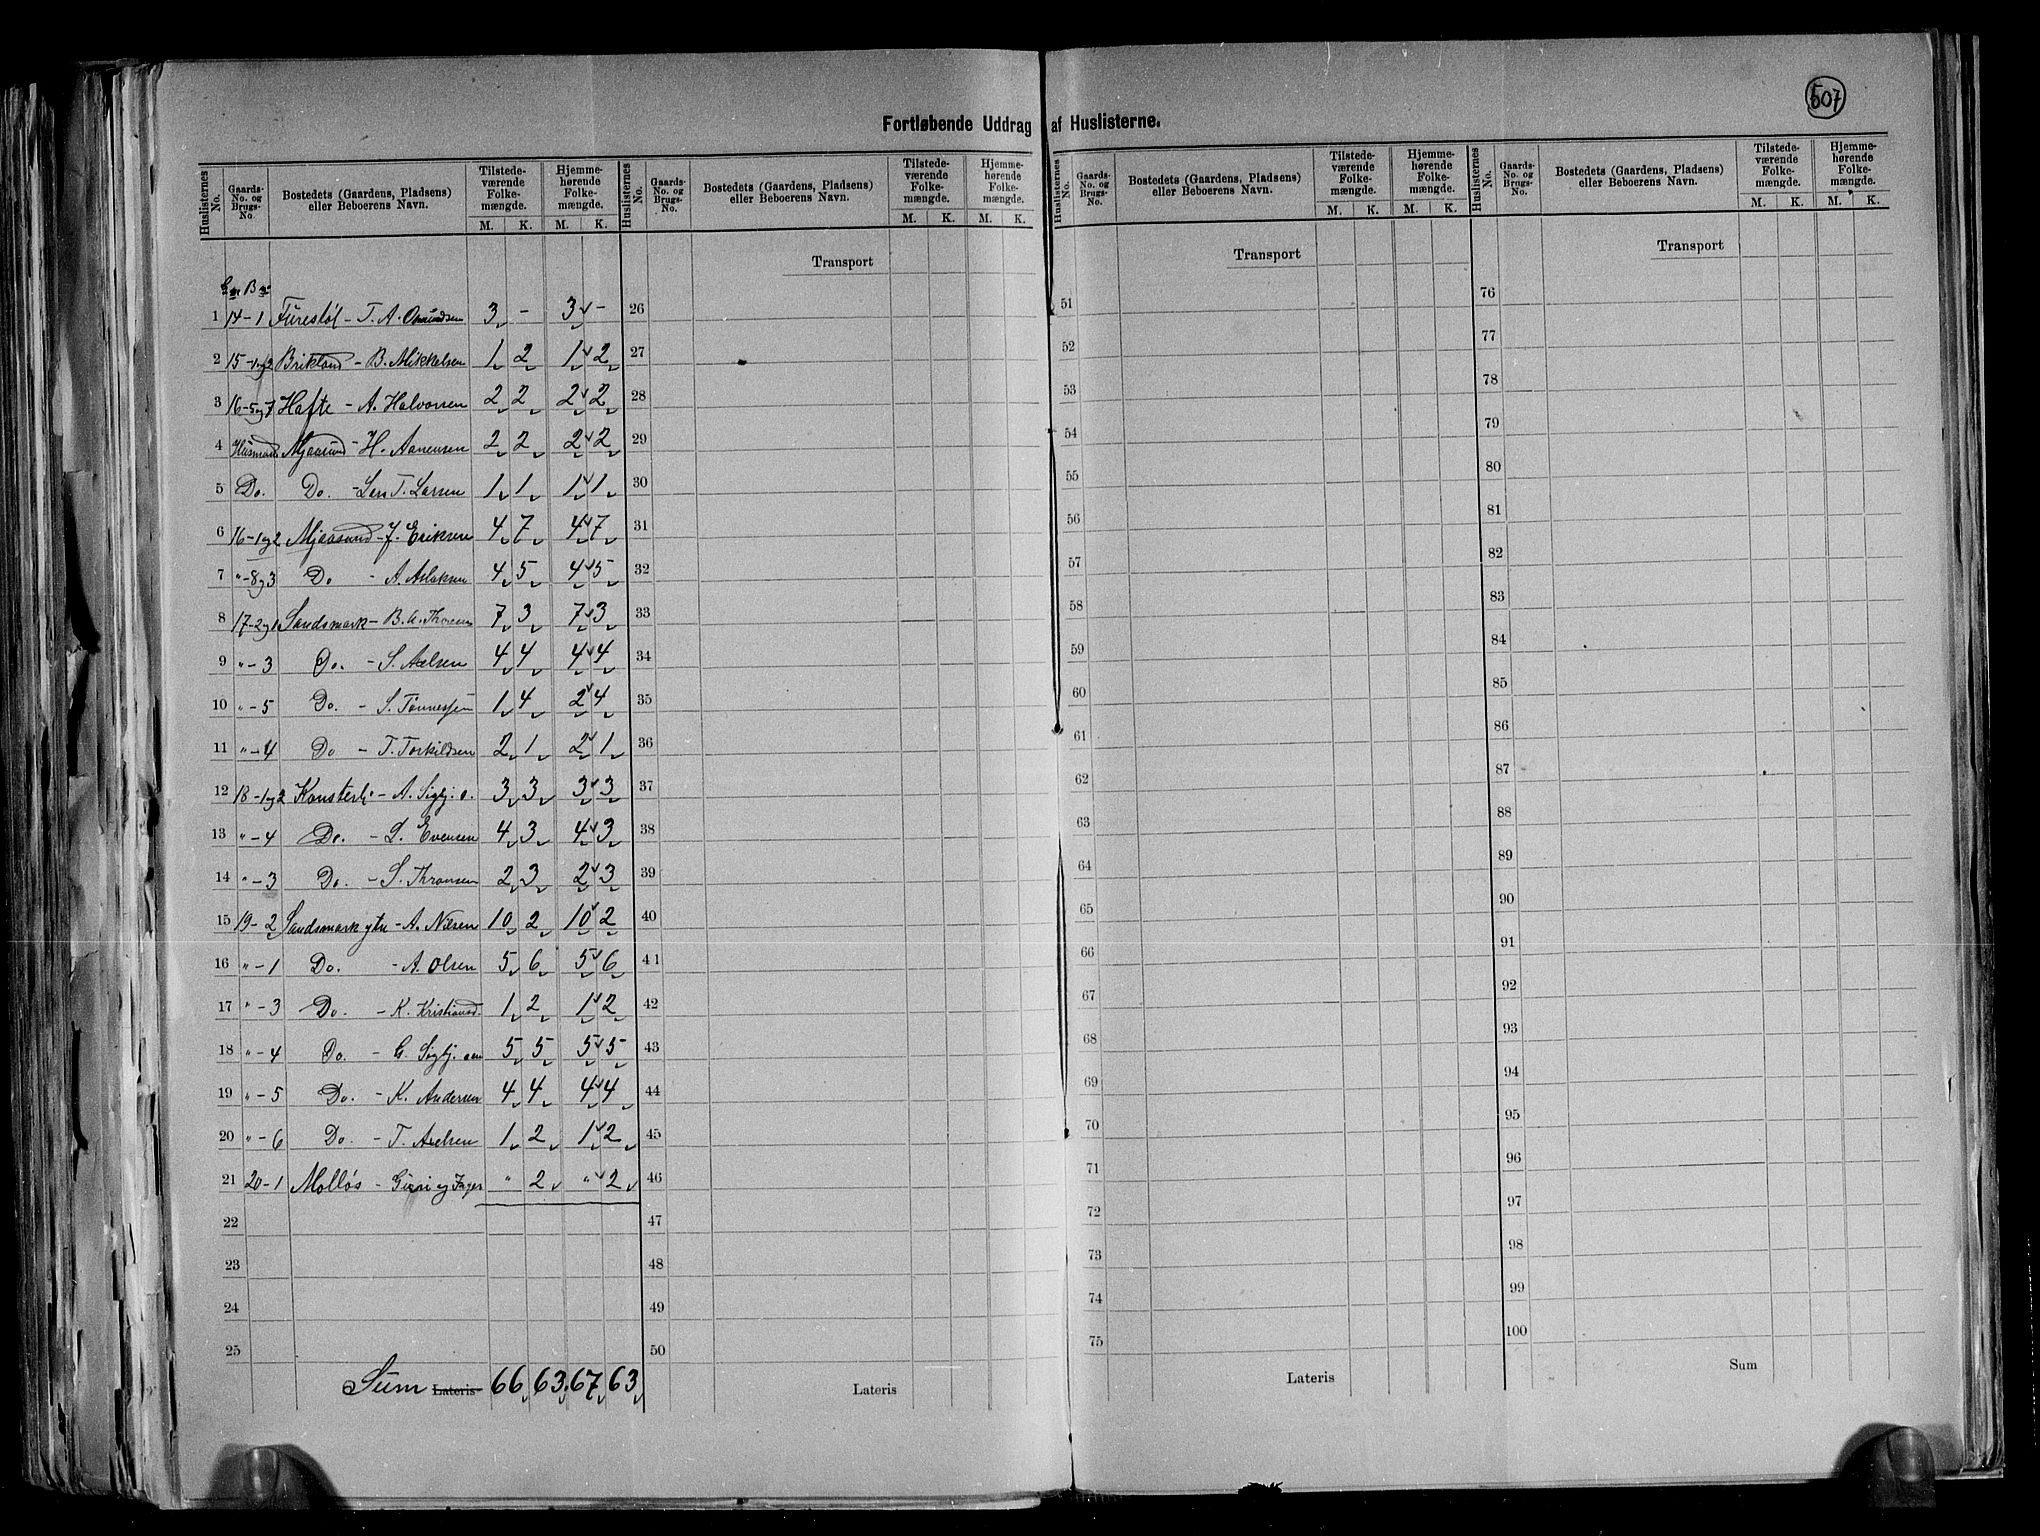 507
Fortløbende Uddrag af Huslisterne.
Huslisternes No. Gaards-No. og Brugs-No. Bostedets (Gaardens, Pladsens) eller Beboerens Navn. Tilstedeværende Folkemængde. M. K. Hjemmehørende Folkemængde. M. K.
Huslisternes No. Gaards-No. og Brugs-No. Bostedets (Gaardens, Pladsens) eller Beboerens Navn. Tilstedeværende Folkemængde. M. K. Hjemmehørende Folkemængde. M. K.
Huslisternes No. Gaards-No. og Brugs-No. Bostedets (Gaardens, Pladsens) eller Beboerens Navn. Tilstedeværende Folkemængde. M. K. Hjemmehørende Folkemængde. M. K.
Huslisternes No. Gaards-No. og Brugs-No. Bostedets (Gaardens, Pladsens) eller Beboerens Navn. Tilstedeværende Folkemængde. M. K. Hjemmehørende Folkemængde. M. K.
Transport Transport Transport
1 14-1 Furestøl - T. A. Omundsen 3 - 3 - 26 51 76
2 15-1og2 Brikland - B. Mikkelsen 1 2 1 2 27 52 77
3 16-5og7 Hafte - A. Halvorsen 2 2 2 2 28 53 78
4 Husmand Mjaasund - H. Aanensen 2 2 2 2 29 54 79
5 Do. Do. - Lars T. Larsen 1 1 1 1 30 55 80
6 16-1og2 Mjaasund - J. Eriksen 4 7 4 7 31 56 81
7 "-8og3 Do - A. Aslaksen 4 5 4 5 32 57 82
8 17-2og1 Sandsmark - B. A. 7 3 7 3 33 58 83
9 "-3 Do. - S. Axelsen 4 4 4 4 34 59 84
10 "-5 Do. - S. Tønnessen 1 4 2 4 35 60 85
11 "-4 Do - T. Torkildsen 2 1 2 1 36 61 86
12 18-1og2 Konsterli - A. Sigbj. s. 3 3 3 3 37 62 87
13 "-4 Do. - L. Evensen 4 3 4 3 38 63 88
14 "-3 Do. - S. Thronsen 2 3 2 3 39 64 89
15 19-2 Sandsmark ytre - A. Nilsen 10 2 10 2 40 65 90
16 "-1 Do. - A. Olsen 5 6 5 6 41 66 91
17 "-3 Do. - K. Kristiansd. 1 2 1 2 42 67 92
18 "-4 Do. - G. Sigbj. sen 5 5 5 5 43 68 93
19 "-5 Do. - K. Andersen 4 4 4 4 44 69 94
20 "-6 Do. - T. Axelsen 1 2 1 2 45 70 95
21 20-1 Molløs - Guri og Inger " 2 " 2 46 71 96
22 47 72 97
23 48 73 98
24 49 74 99
25 50 75 100
Sum Lateris 66 63. 67 63 Lateris Lateris Sum